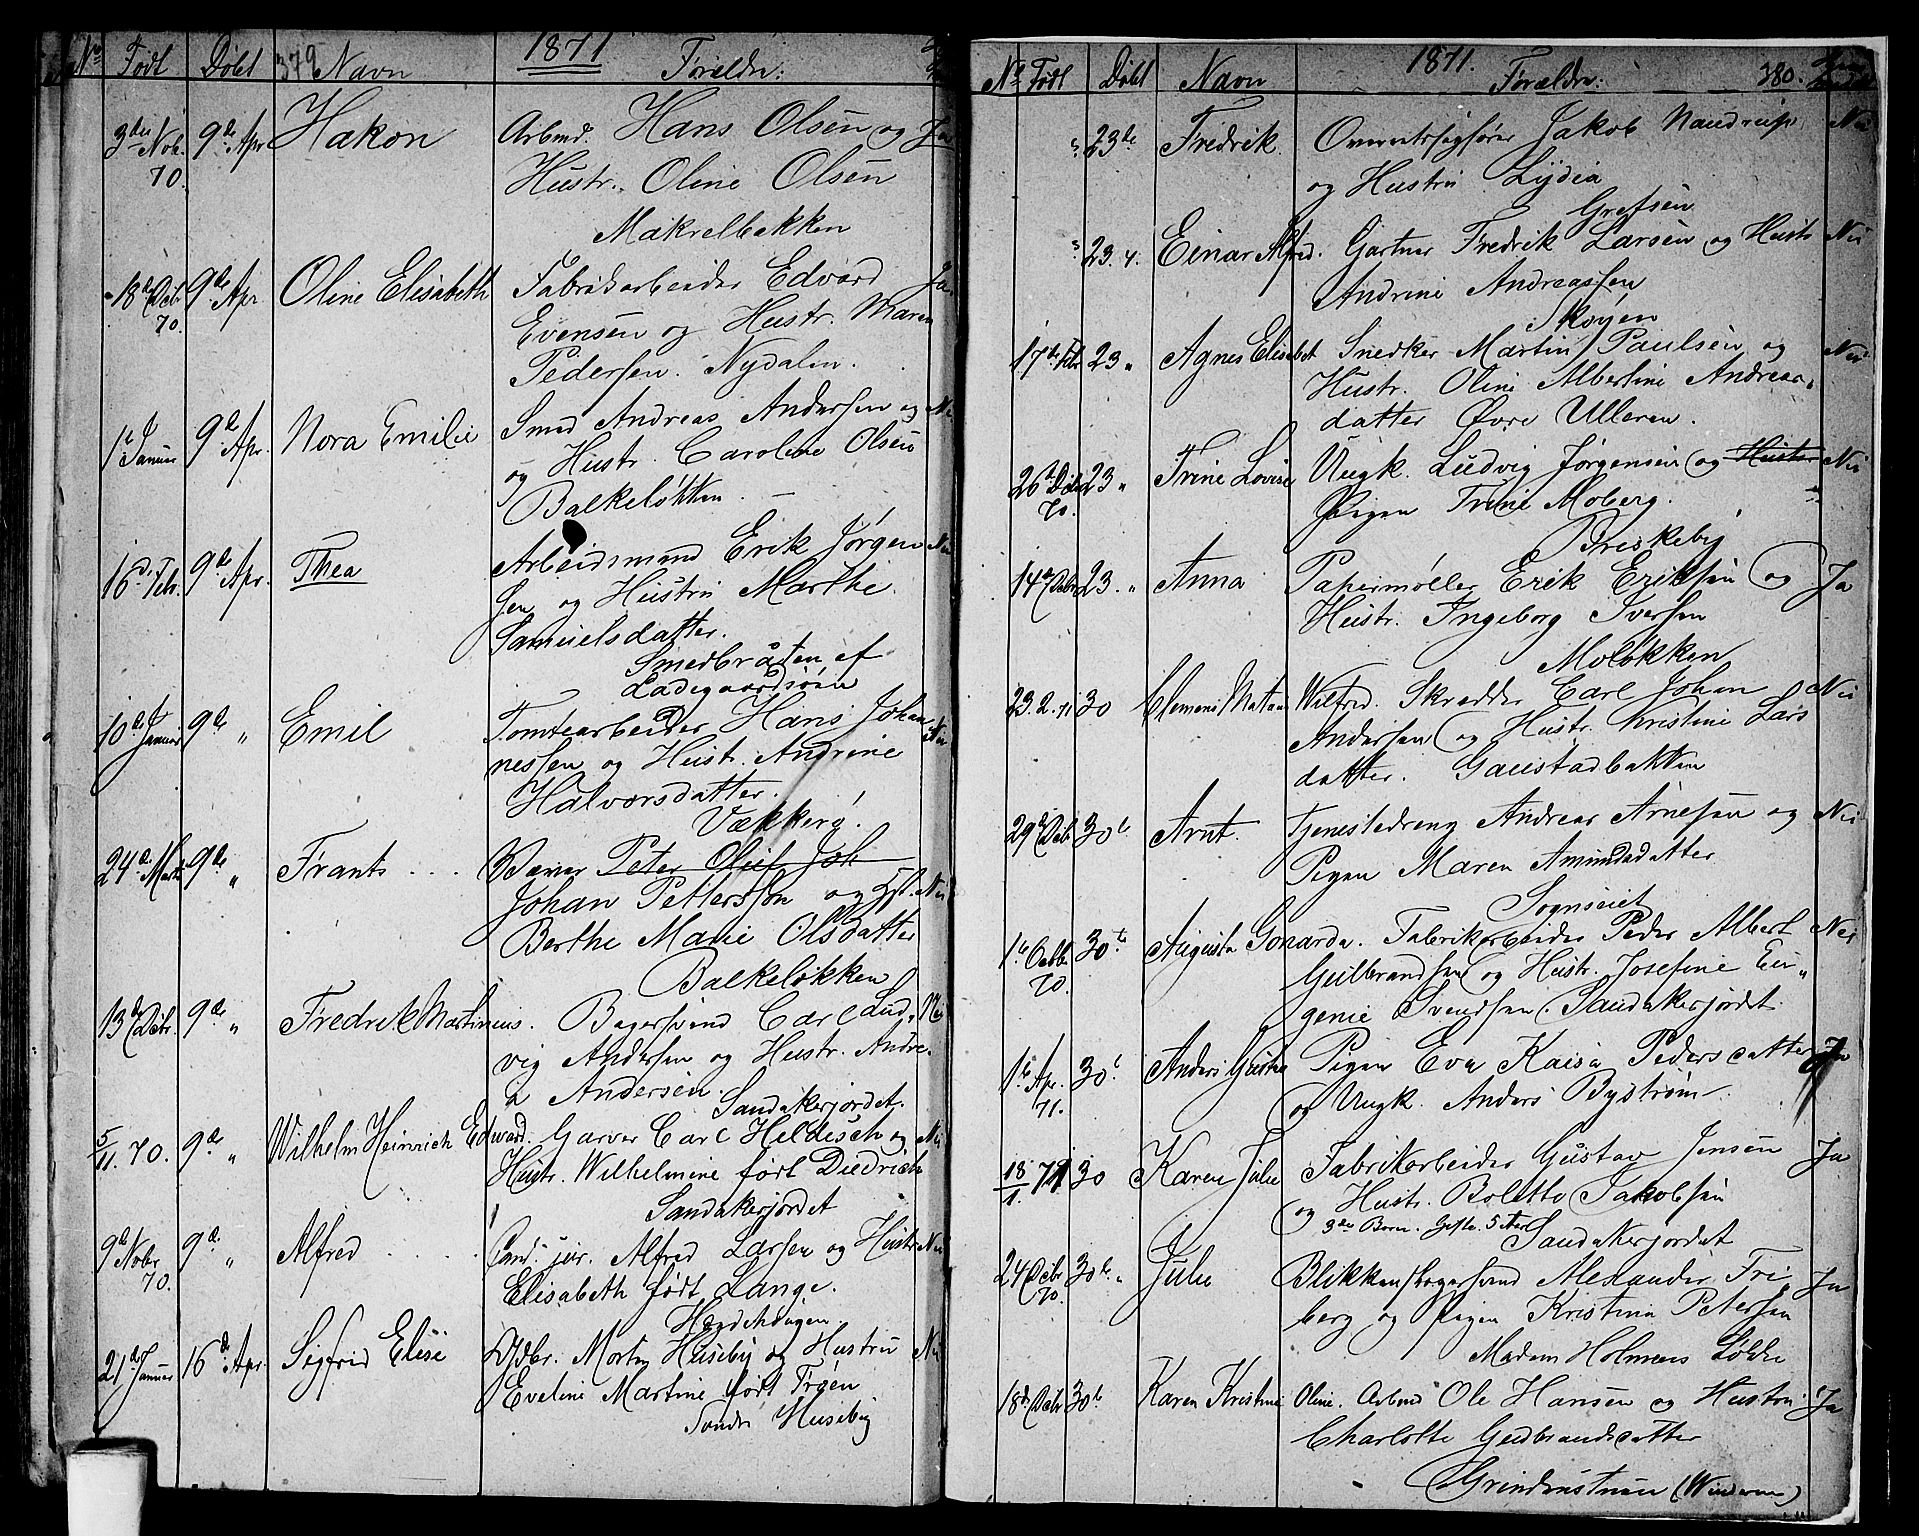 No Født Døbt 379 Navn 1871 Forældre:
3die Nob. 70. 9de Apr Hakon Arbmd. Hans Olsen og Ja
Hustr. Oline Olsen
Makrelbekken
18de Dcbr 70. 9de Apr Oline Elisabeth Fabrikarbeider Edvard Ja
Evensen og Hustr. Maren
Pedersen. Nydalen.
1te Januar 9de Apr. Nora Emilie Smed Andreas Andersen og
og Hustr. Caroline Olsen
Balkeløkken
16de Febr. 9de Apr. Thea Arbeidsmand Erik Jørgen
sen og Hustru Marthe
Samuelsdatter.
Smedbråten af
Ladegaardsøen
10de Januar 9de " Emil Tomtearbeider Hans Johan
nessen og Hustr. Andrine
Halvorsdatter.
Vækkerø.
24de Marts 9de " Frants Peter Oluf Joh
Johan Pettersson og Nei
Berthe Marie Olsdatter
Balkeløkken
13de Dcbr. 9de " Fredrik Martinius. Bagersvend Carl Lud. Nei
vig Andersen og Hustr. Andre.
a Andersen.
Sandakerjordet.
5/11. 70. 9de " Wilhelm Heinrich Edward. Garver Carl Heldisch og Nei
Hustr. Wilhelmine født Diedrich
Sandakerjordet
9de Nobr 70. 9de " Alfred Cand. jur. Alfred Larsen og Hustr Nei
Elisabeth født Lange.
21de Januar 16de Apr. Sigfrid Elise Gdbr. Morten Huseby og Hustru Nei
Eveline Martine født Trøen
Søndre Huseby
No Født Døbt Navn 1871. Forældre: 380.
23de Fredrik Overretssagfører Jakob Naudrup Nei
og Hustru Lydia
Grefsen
23. 4. Einar Alfred. Gartner Fredrik Larsen og Hustr Nei
Andrine Andreassen
Skøyen
17de Febr 23 " Agnes Elisabet Snedker Martin Paulsen og Nei
Hustr. Oline Albertine Andreas
datter Øvre Ulleren.
26de Dcbr 70. 23 " Trine Lovise Ungk. Ludvig Jørgensen og Hustr Nei
Pigen Trine Moberg.
Briskeby
14de Dcbr 23. " Anna Papermøller Erik Eriksen og Ja
Hustr. Ingeborg Iversen
Moløkken
23. 2. 71 30 Wilfred. Skrædder Carl Johan Nei
Andersen og Hustr. Kristine Lars
datter. Gaustadbakken
29de Dcbr 30te Arnt. Tjenestedreng Andreas Arnesen og Nei
Pigen Maren Amundsdatter
Sognsveiet
1te Octbr. 70. 30te Augusta Gonarda. Fabrikarbeider Peder Albert Nei
Gulbrandsen og Hustr. Josefine Eu "
genie Svendsen. Sandakerjordet.
1te Apr. 71. 30te Anders Gustav Pigen Eva Kaisa Pedersdatter Ja
og Ungk. Anders Byström
18/1. 71 30 Karen Julie Fabrikarbeider Gustav Jensen Ja
og Hustr. Bolette Jakobsen
3die Barn. Gifte 5 Aar
Sandakerjordet
24 Dcbr 70. 30te " Julie Blikkenslagersvend Alexander Fri Ja
berg og Pigen Kristina Petersen
Madam Holmens Løkke
18de Dcbr 30te Karen Kristine Oline. Arbmd Ole Hansen og Hustru Ja
Charlotte Gudbrandsdatter
Grindenstuen (Winderen)